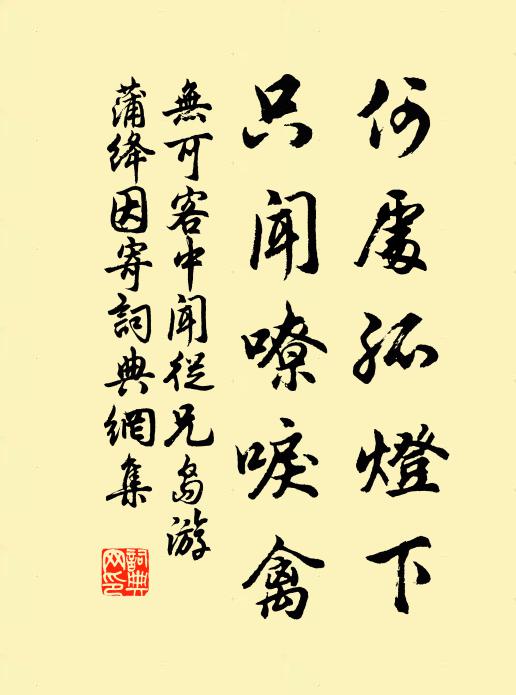 何處孤燈下
只聞嘹唳禽
無可客中聞從兄島游
蒲絳因寄詞典網集
詞典网印